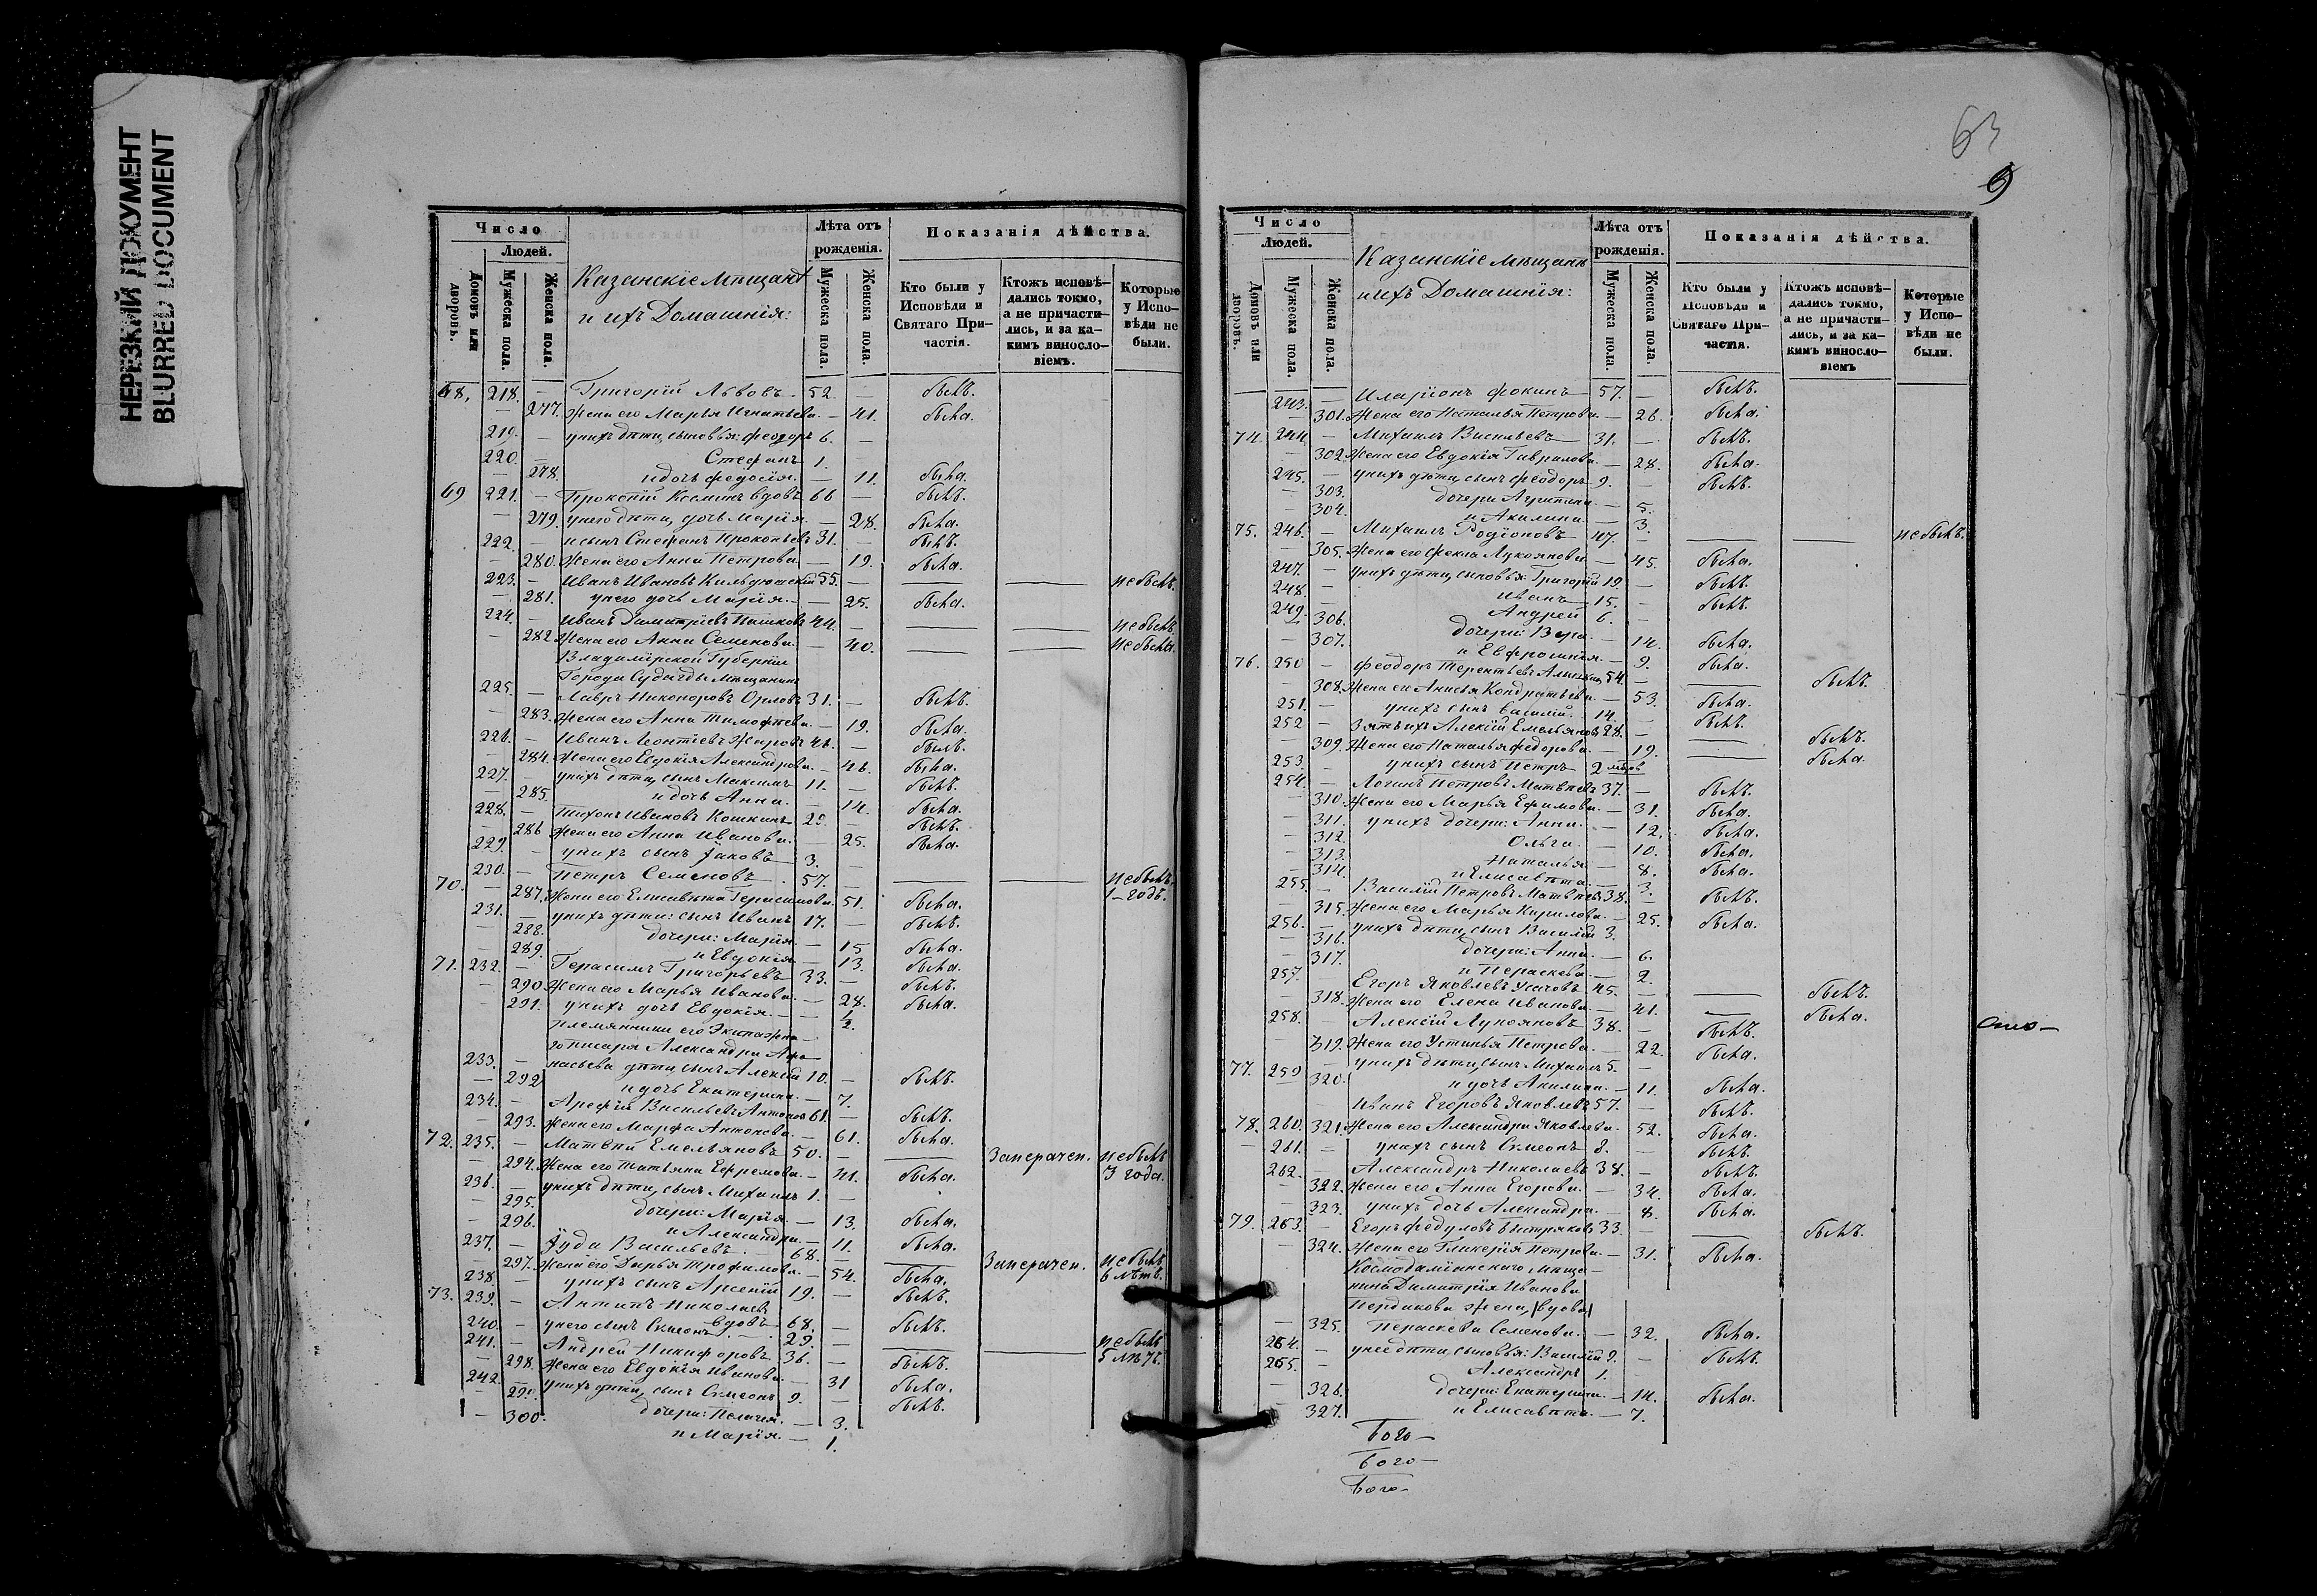 НЕРЕЗКИЙ ДОКУМЕНТ
BLURRED DOCUMENT
Число
Людей.
Домовъ или дворовъ.
Мужеска пола.
Женска пола.
Казанскіе Мѣщане
и ихъ Домашнія:
Лѣта отъ рожденія.
Мужеска пола.
Женска пола.
Показанія дѣйства.
Кто были у Исповѣди и Святаго Причастія.
Ктожъ исповѣдались токмо, а не причастились, и за какимъ винословіемъ.
Которые у Исповѣди не были.
68. 218. — Григорій Львовъ. 52. — былъ.
— 277. Жена его Марья Игнатьева. — 41. была.
219. — у нихъ дѣти, сыновья: Феодоръ 6. —
220. — Стефанъ 1. —
— 278. и дочь Федосія. — 11. была.
69 221. — Прокопій Козминъ вдовъ 66 — былъ.
— 279. у него дѣти, дочь Марія. — 28. была.
222. — и сынъ Стефанъ Прокопьевъ 31. — былъ.
— 280. Жена его Анна Петрова. — 19. была.
223. — Иванъ Ивановъ 55. — — — не былъ.
— 281. у него дочь Марія. — 25. была.
224. — Иванъ Димитріевъ Пашковъ 44. — — — не былъ.
— 282. Жена его Анна Семенова. — 40. — — не была.
Владимірской Губерніи
Города Судагды Мѣщанинъ
225. — Лавръ Никоноровъ Орловъ 31. — былъ.
— 283. Жена его Анна Тимофѣева. — 19. была.
226. — Иванъ Леонтіевъ 46. — былъ.
— 284. Жена его Евдокія Александрова. — 46. была.
227. — у нихъ дѣти, сынъ Максимъ 11. — былъ.
— 285. и дочь Анна. — 14. была.
228. — Тихонъ Ивановъ Кошкинъ 29. — былъ.
— 286 Жена его Анна Иванова. — 25. была.
229. — у нихъ сынъ Іаковъ 3. —
70. 230. — Петръ Семеновъ 57. — — — не былъ 1-годъ.
— 287. Жена его Елисавѣта Герасимова. 51. была.
231. — у нихъ дѣти: сынъ Иванъ 17. — былъ.
— 288. дочери: Марія. — 15 была.
— 289. и Евдокія — 13. была.
71. 232. — Герасимъ Григорьевъ 33. — былъ.
— 290. Жена его Марья Иванова. — 28. была.
— 291. у нихъ дочь Евдокія. — ½.
племянники его Экипажна-
го писаря Александра Афа-
233. — насьева дѣти, сынъ Алексій 10. — былъ.
— 292 и дочь Екатерина. — 7.
234. — Арефій Васильевъ Антоновъ 61. — былъ.
— 293. Жена его Марфа Антонова. — 61. была.
72. 235. — Матвѣй Емельяновъ 50. — — Занерачен. не былъ 3 года.
— 294. Жена его Татьяна Ефремова. — 41. была.
236. — у нихъ дѣти, сынъ Михаилъ 1. —
— 295. дочери: Марія. — 13. была.
— 296. и Александра. — 11. была.
237. — Іуда Васильевъ. 68. — — Занерачен. не былъ 6 лѣтъ.
— 297. Жена его Дарья Трофимова. — 54. была.
238. — у нихъ сынъ Арсеній 19. — былъ.
73. 239. — Антипъ Николаевъ
вдовъ. 68. — былъ.
240. — у него сынъ Симеонъ 29. — — — не былъ 5 лѣтъ.
241. — Андрей Никифоровъ 36. — былъ.
— 298. Жена его Евдокія Иванова. — 31 была.
242. — у нихъ дѣти, сынъ Симеонъ 9. — былъ.
— 299. дочери: Пелагея. — 3.
— 300. и Марія. — 1.
63
9
Число
Людей.
Домовъ или дворовъ.
Мужеска пола.
Женска пола.
Казанскіе Мѣщане
и ихъ Домашнія:
Лѣта отъ рожденія.
Мужеска пола.
Женска пола.
Показанія дѣйства.
Кто были у Исповѣди и Святаго Причастія.
Ктожъ исповѣдались токмо, а не причастились, и за какимъ винословіемъ
Которые у Исповѣди не были.
243. — Иларіонъ Фокинъ 57. — былъ.
— 301. Жена его Наталья Петрова. — 26. была.
74. 244. — Михаилъ Васильевъ 31. — былъ.
— 302. Жена его Евдокія Гаврилова. — 28. была.
245. — у нихъ дѣти, сынъ Феодоръ 9. — былъ.
— 303. дочери Агрипина. — 5.
— 304. и Акилина. — 3.
75. 246. — Михаилъ Родіоновъ 47. — — — не былъ.
— 305. Жена его Фекла Лукоянова. — 45. была.
247. — у нихъ дѣти, сыновья: Григорій 19. — былъ.
248. — Иванъ 15. — былъ.
249. — Андрей 6. —
— 306. дочери: Вера. — 14. была.
— 307. и Ефросинія. — 9. была.
76. 250 — Феодоръ Терентьевъ 54. — — былъ.
— 308. Жена его Анисья Кондратьева. — 53. была.
251. — у нихъ сынъ Василій. 14. — былъ.
252 — Зять ихъ Алексій Емельяновъ 28. — — былъ.
— 309. Жена его Наталья Федорова. — 19. — была.
253. — у нихъ сынъ Петръ 2
254. — Логинъ Петровъ Матвѣевъ 37. — былъ.
— 310. Жена его Марья Ефимова. — 31. была.
— 311. у нихъ дочери: Анна. — 12. была.
— 312. Ольга. — 10. была.
— 313. Наталья. — 8. была.
— 314. и Елисавѣта. — 3.
255. — Василій Петровъ Матвѣевъ 38. — былъ.
— 315. Жена его Марья Кирилова. — 25. была.
256. — у нихъ дѣти, сынъ Василій 3.
— 316. дочери: Анна. — 6.
— 317. и Параскева. — 2.
257. Егоръ Яковлевъ Усачовъ 45. — — былъ.
— 318. Жена его Елена Иванова. — 41. — была.
258. Алексій Лукояновъ 38. — былъ.
— 319. Жена его Устинья Петрова. — 22. была.
77. 259 — у нихъ дѣти, сынъ Михаилъ 5. —
— 320. и дочь Акилина. — 11. была.
Иванъ Егоровъ Яковлевъ 57. — былъ.
78. 260. 321. Жена его Александра Яковлева. 52. была.
— 261. — у нихъ сынъ Симеонъ 8. — былъ.
262. — Александръ Николаевъ 38. — былъ.
— 322. Жена его Анна Егорова. — 34. была.
— 323. у нихъ дочь Александра. — 8. была.
79. 263. — Егоръ Федуловъ Быстряковъ 33. — — былъ.
— 324. Жена его Гликерія Петрова. — 31. была.
Космодаміянскаго мѣща-
нина Димитрія Иванова
Пердикова жена, (вдова)
— 325. Параскева Семенова. — 32. была.
264. — у нее дѣти, сыновья: Василій 9. — былъ.
265. — Александръ 1. —
— 326. дочери: Екатерина. — 14. была.
— 327. и Елисавѣта. — 7.
Бого-
Бого-
Бого-